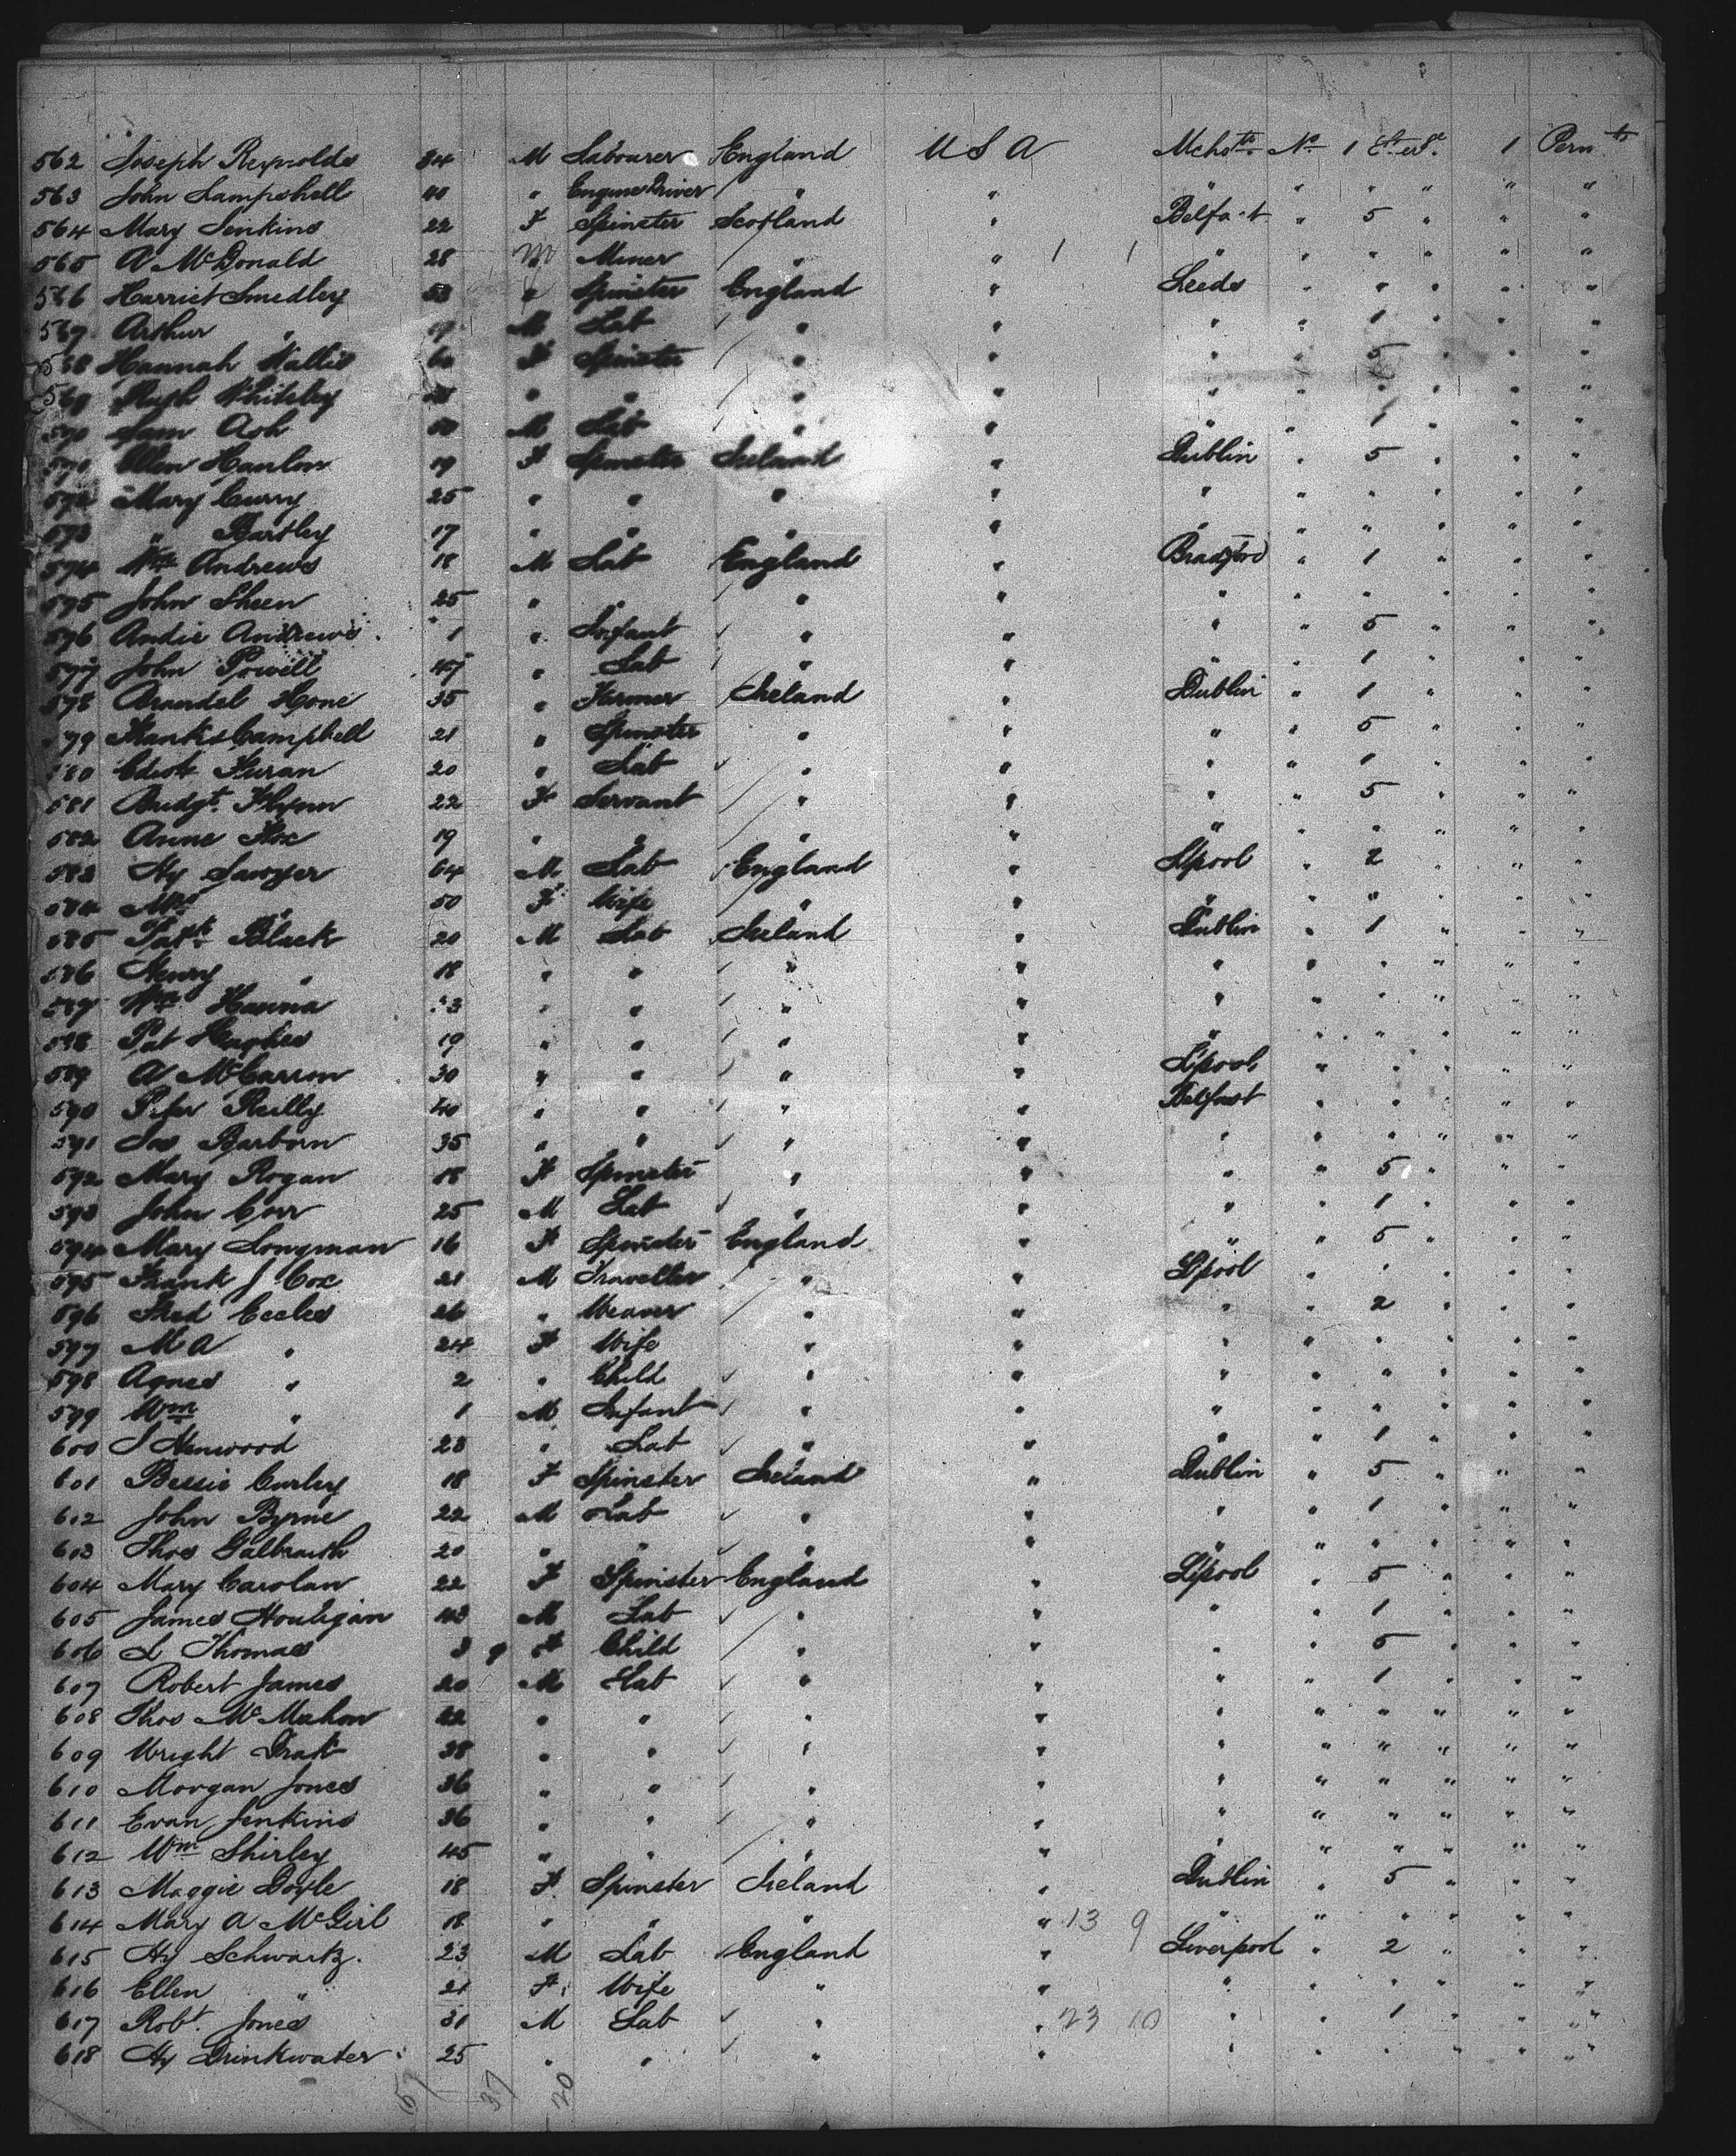 562 Joseph Reynolds 34 M Labourer England U S A Mchstr No 1 St 1 Permt
563 John Lampshell 40 " Engine Driver " " " " " " " "
564 Mary Jenkins 22 F Spinster Scotland " Belfast " 5 " " "
565 A McDonald 28 M Miner " " 1 1 " " " " " "
566 Harriet Smedley 53 " Spinster England " Leeds " " " " "
567 Arthur " 19 M Lab " " " " 1 " " "
568 Hannah Wallis 60 F Spinster " " " " 5 " " "
569 Whiteley " " " " " " " " " "
570 Sam Ash 50 M Lab " " " " 1 " " "
571 Ellen Hanlon 19 F Spinster Ireland " Dublin " 5 " " "
572 Mary Curry 25 " " " " " " " " " "
573 " Bartley 17 " " " " " " " " " "
574 Wm Andrews 18 M Lab England " Bradford " 1 " " "
575 John Sheen 25 " " " " " " " " " "
576 Andie Andrews 1 " Infant " " " " 5 " " "
577 John Powell 47 " Lab " " " " 1 " " "
578 Arundel Hone 35 " Farmer Ireland " Dublin " 1 " " "
579 Campbell 21 " Spinster " " " " 5 " " "
580 20 " Lab " " " " 1 " " "
581 Bridgt Flynn 22 F Servant " " " " 5 " " "
582 Anne Fox 19 " " " " " " " " " "
583 Hy Sawyer 64 M Lab England " Lpool " 2 " " "
584 Mrs " 50 F Wife " " " " " " " "
585 Patk Black 20 M Lab Ireland " Dublin " 1 " " "
586 Henry " 18 " " " " " " " " " "
587 Wm Hanna 3 " " " " " " " " " "
588 Pat Hughes 19 " " " " " " " " " "
589 A McCarron 30 " " " " Lpool " " " " "
590 Peter Reilly 40 " " " " Belfast " " " " "
591 Jas Barborn 35 " " " " " " " " " "
592 Mary Rogan 18 F Spinster " " " " 5 " " "
593 John Corr 25 M Lab " " " " 1 " " "
594 Mary Longman 16 F Spinster England " " " 5 " " "
595 Frank J Cox 21 M Traveller " " Lpool " " " " "
596 Fred Eccles 26 " Weaver " " " " 2 " " "
597 M A " 24 F Wife " " " " " " " "
598 Agnes " 2 " Child " " " " " " " "
599 Wm " 1 M Infant " " " " " " " "
600 J Henwood 23 " Lab " " " " 1 " " "
601 Bessie Curley 18 F Spinster Ireland " Dublin " 5 " " "
602 John Byrne 22 M Lab " " " " 1 " " "
603 Thos Galbraith 20 " " " " " " " " " "
604 Mary Carolan 22 F Spinster England " Lpool " 5 " " "
605 James Houligan 43 M Lab " " " " 1 " " "
606 L Thomas 3 9 F Child " " " " 5 " " "
607 Robert James 20 M Lab " " " " 1 " " "
608 Thos McMahon 22 " " " " " " " " " "
609 Wright 38 " " " " " " " " " "
610 Morgan Jones 36 " " " " " " " " " "
611 Evan Jenkins 36 " " " " " " " " " "
612 Wm Shirley 45 " " " " " " " " " "
613 Maggie Doyle 18 F. Spinster Ireland " Dublin " 5 " " "
614 Mary A McGirl 18 " " " " 13 9 " " " " " "
615 Hy Schwartz. 23 M Lab England " Liverpool " 2 " " "
616 Ellen " 21 F. Wife " " " " " " " "
617 Robt. Jones 31 M Lab " " 23 10 " " 1 " " "
618 Hy Drinkwater 25 " " " " " " " " " "
57 37 20